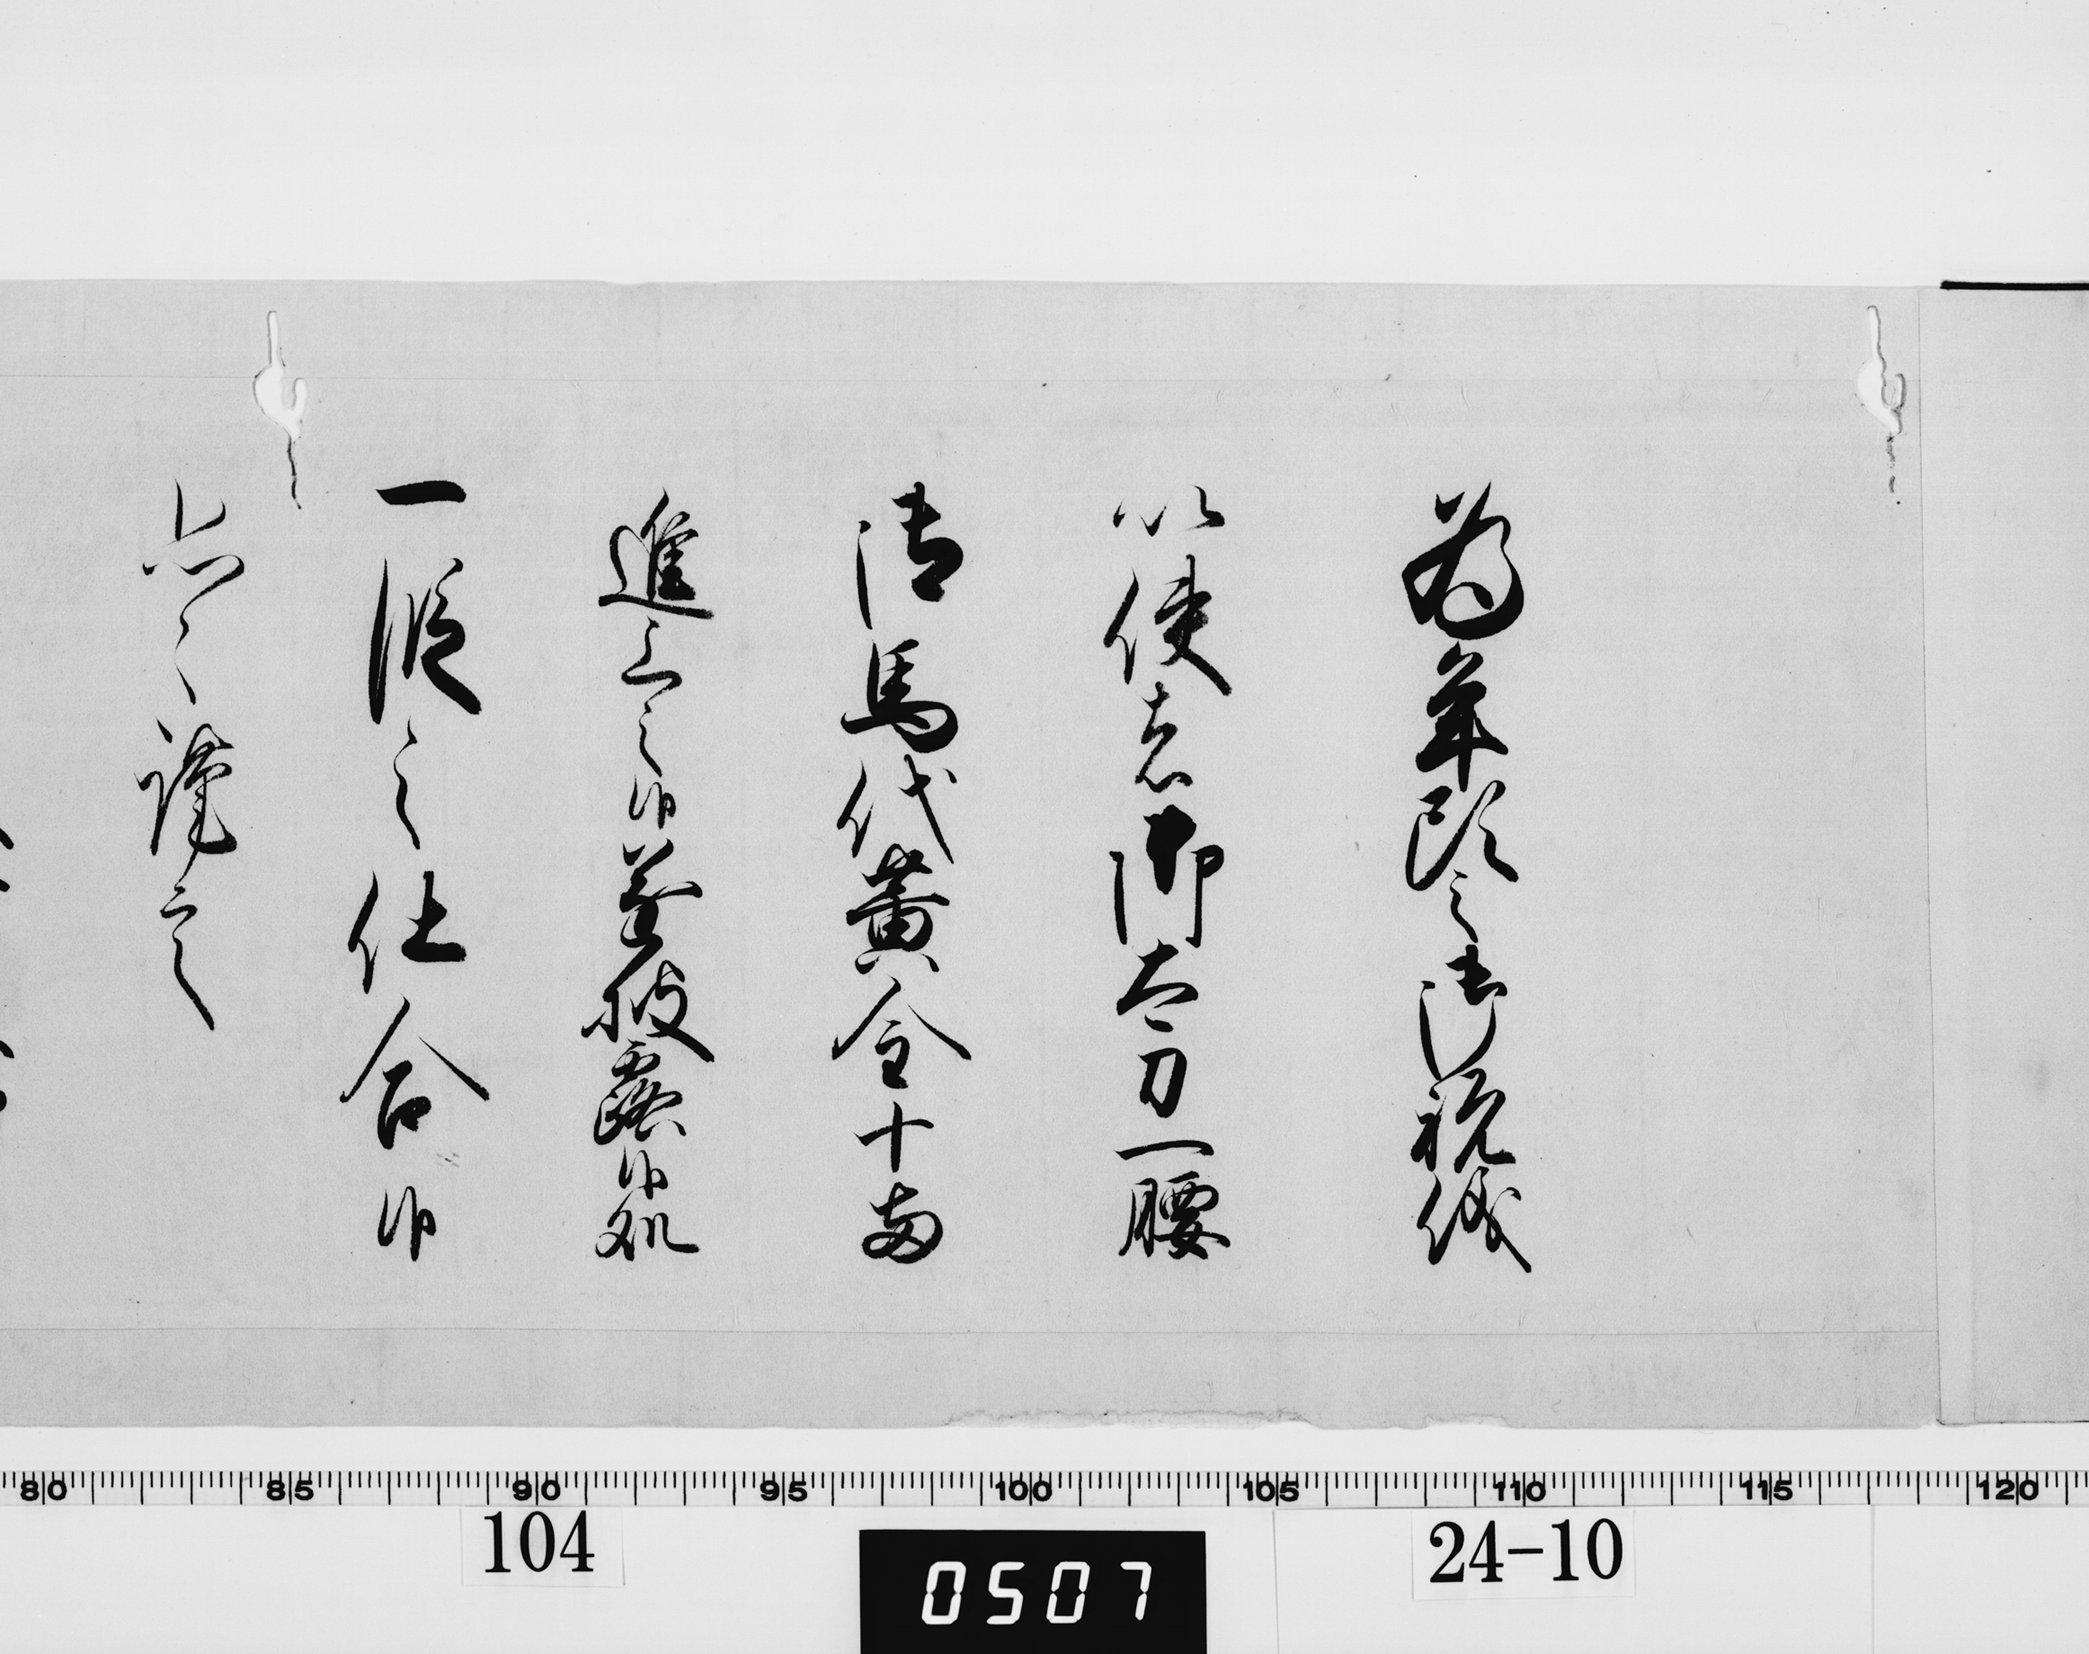 為年頭之御祝儀
以使者御太刀一腰
御馬代黄金十両
進上之候遂披露候処
一段之仕合候
恐々謹言
80 85 90 95 100 105 110 115 120
104
24-10
0507